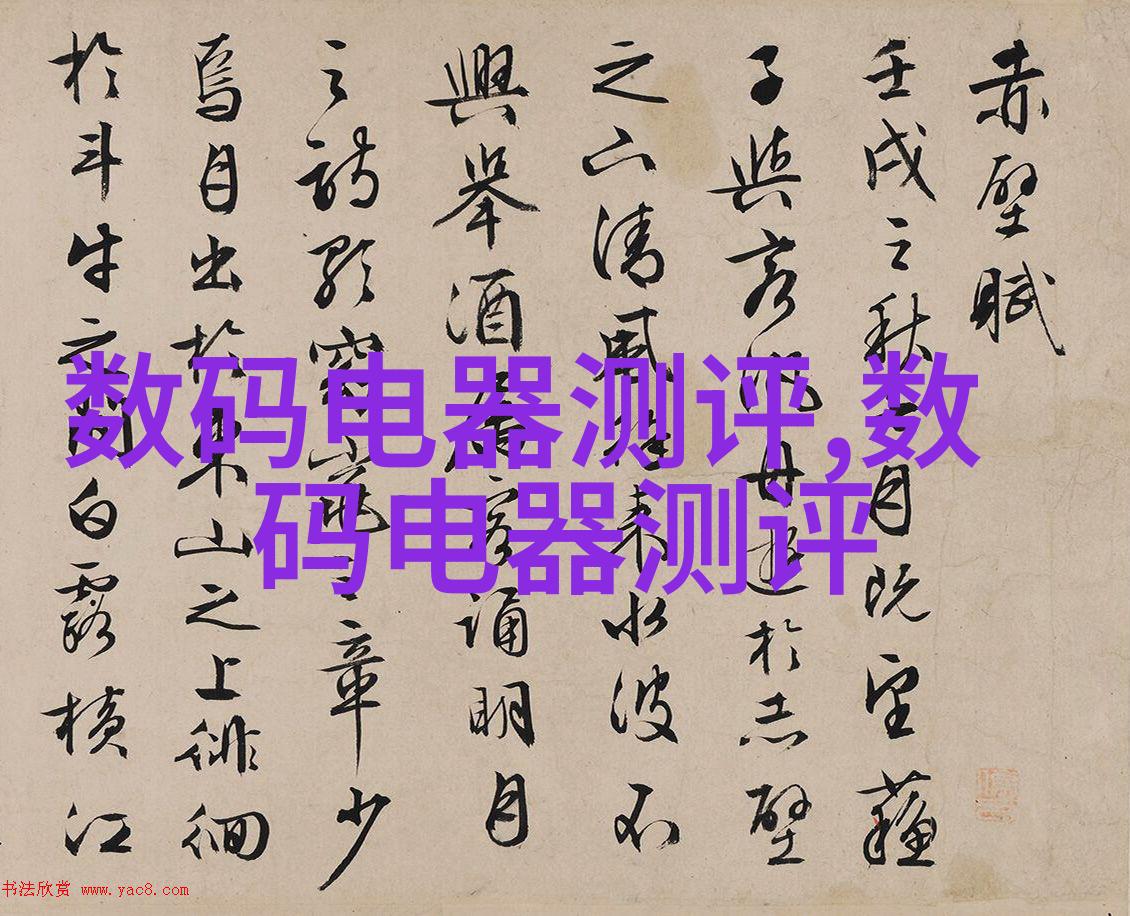 赤壁賦
壬戌之秋七月既望蘇
子與客泛舟遊於赤壁
之下清風徐來水波不
興舉酒屬客誦明月
之詩歌窈窕之章少
焉月出於東山之上徘徊
於斗牛之間白露橫江
数码电器测评,数
码电器测评
书法欣赏 www.yac8.com